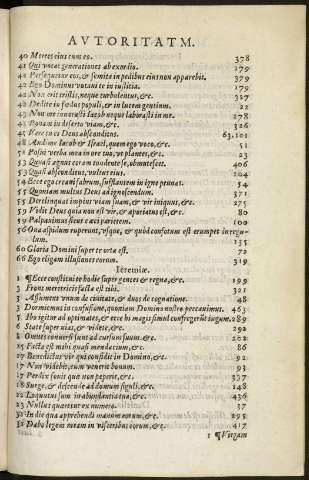 AVTORITATM.
40 Merces eius cum eo. 378
41 Qui vocat generationes ab exordio. 179
41 Persequetur eos, & semita in pedibus eius non apparebit. 379
42 Ego Dominus vocaui te in iustitia. 179
42 Non erit tristis, neque turbulentus, &c. 317
42 Dedite in fœdus populi, & in lucem gentium. 22
43 Non me inuocasti Iacob neque laborasti in me. 278
43 Ponam in deserto viam, &c. 326
45 Vere tu es Deus absconditus. 63.101
48 Audime Iacob & Israël, quem ego voco, &c. 51
51 Posui verba mea in ore tuo, vt plantes, &c. 23
53 Quasi agnus coram tondente se, obmutescet. 406
53 Quasi absconditus, vultus eius. 204
54 Ecce ego creaui fabrum, sufflantem in igne prunas. 54
55 Quoniam multus Deus ad ignoscendum. 371
55 Derelinquat impius viam suam, & vir iniquus, &c. 275
59 Vidit Deus quia non est vir, & aporiatus est, &c. 80
59 Palpauimus sicut cæci parietem. 100
56 Ona aspidum ruperunt, vsque, & quod confotum est erumpet in regulum. 135
60 Gloria Domini super te orta est. 72
66 Ego eligam illusiones eorum. 319
Ieremiæ.
1 ¶Ecce constitui te hodie super gentes & regna, &c. 199
3 Frons meretricis facta est tibi. 321
3 Assument vnum de ciuitate, & duos de cognatione. 48
3 Dormiemus in confusione, quoniam Domino nostro peccauimus. 463
5 Ibo igitur ad optimates, & ecce hi magis simul confregerunt iugum. 289
6 State super vias, & videte, &c. 292
8 Omnes conuersi sunt ad cursum suum, &c. 202
15 Facta est mihi quasi mendacium, &c. 86
17 Benedictus vir qui confidit in Domino, &c. 92
17 Non videbit, cum venerit bonum. 93
17 Perdix fouit quæ non peperit, &c. 337
18 Surge, & descende ad domum figuli, &c. 148
22 Loquutus sum in abundantia tua, &c. 436
23 Nullus quæretur ex numero. 37
31 In die qua apprehendi manum eorum, &c. 295
31 Dabo legem meam in visceribus eorum, &c. 417
¶Virgam